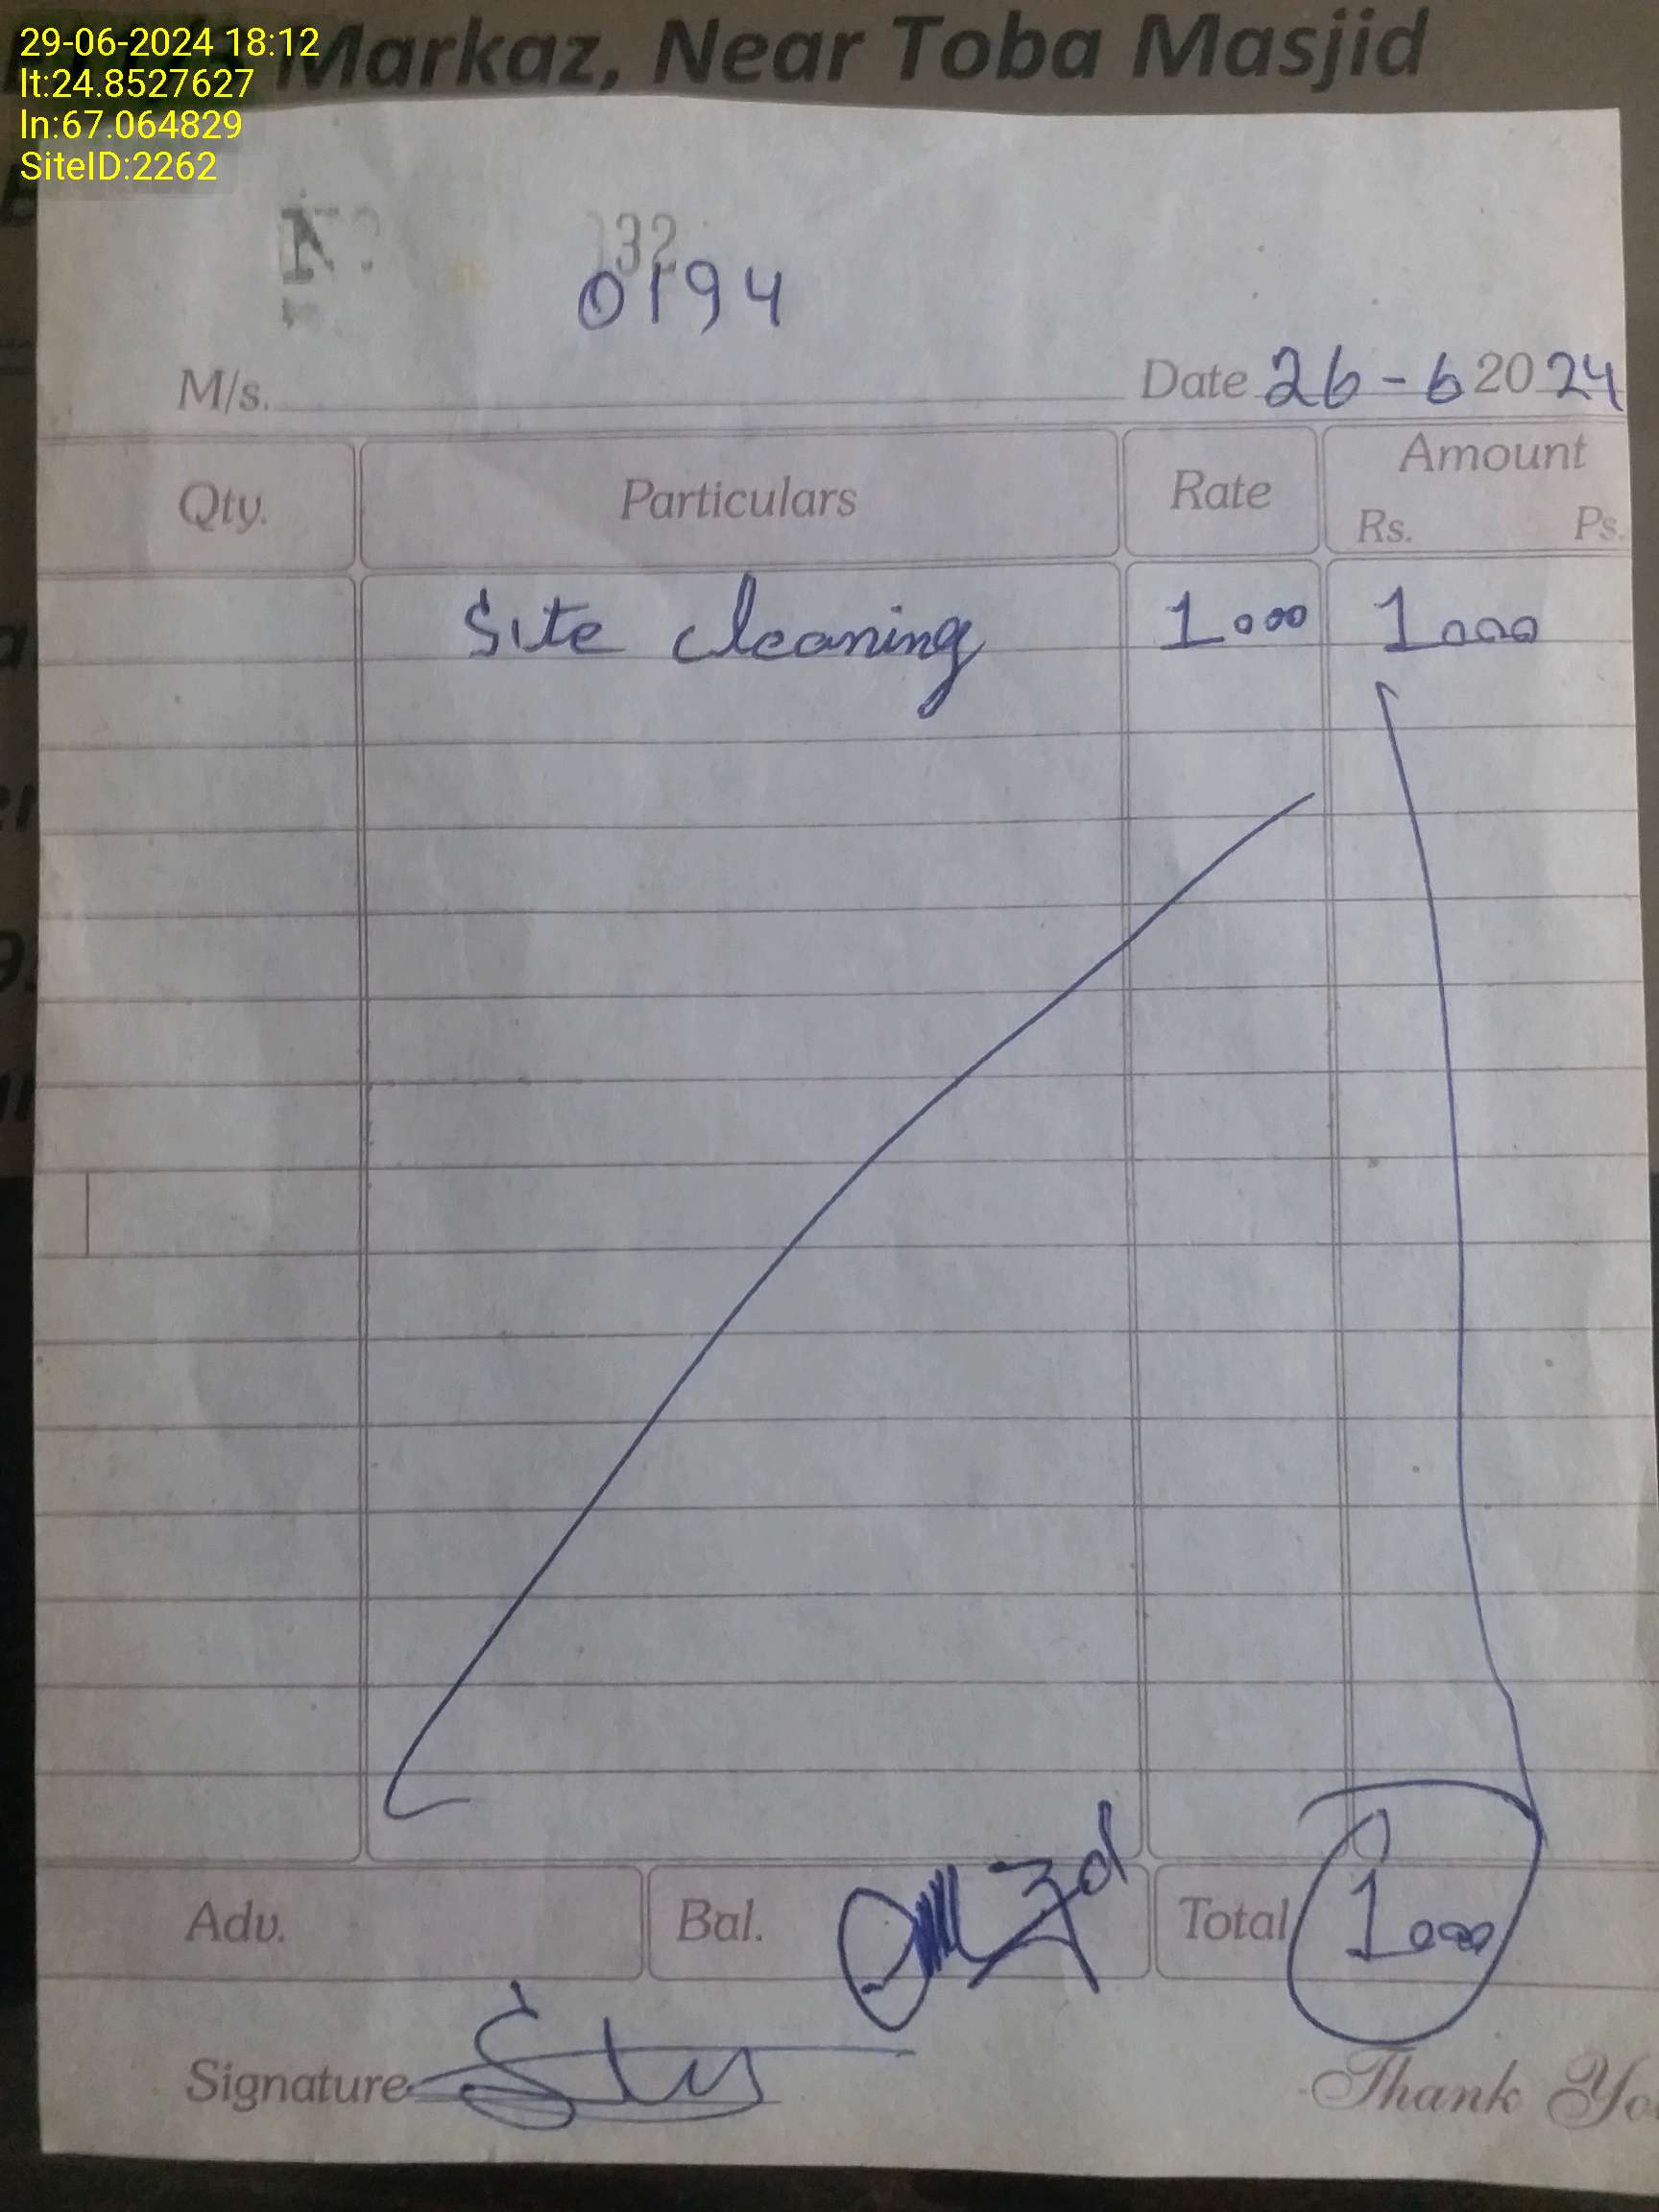 29-06-2024 18:12
lt:24.8527627
ln:67.064829
SiteID:2262
Markaz, Near Toba Masjid
32
0194
M/s.
Date 26-6 2024
Qty. Particulars Rate Amount
Rs. Ps.
Site cleaning 1000 1000
Adv. Bal. Total 1000
Signature
Thank